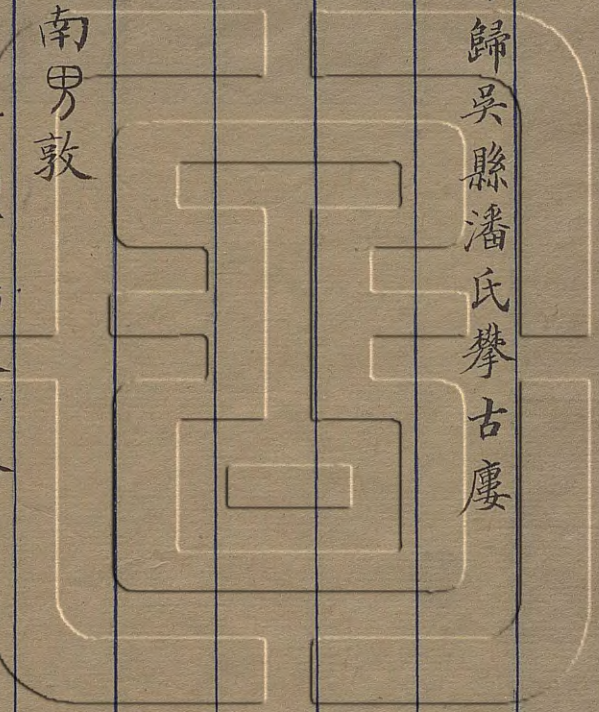 歸吳縣潘氏攀古廔
南男敦